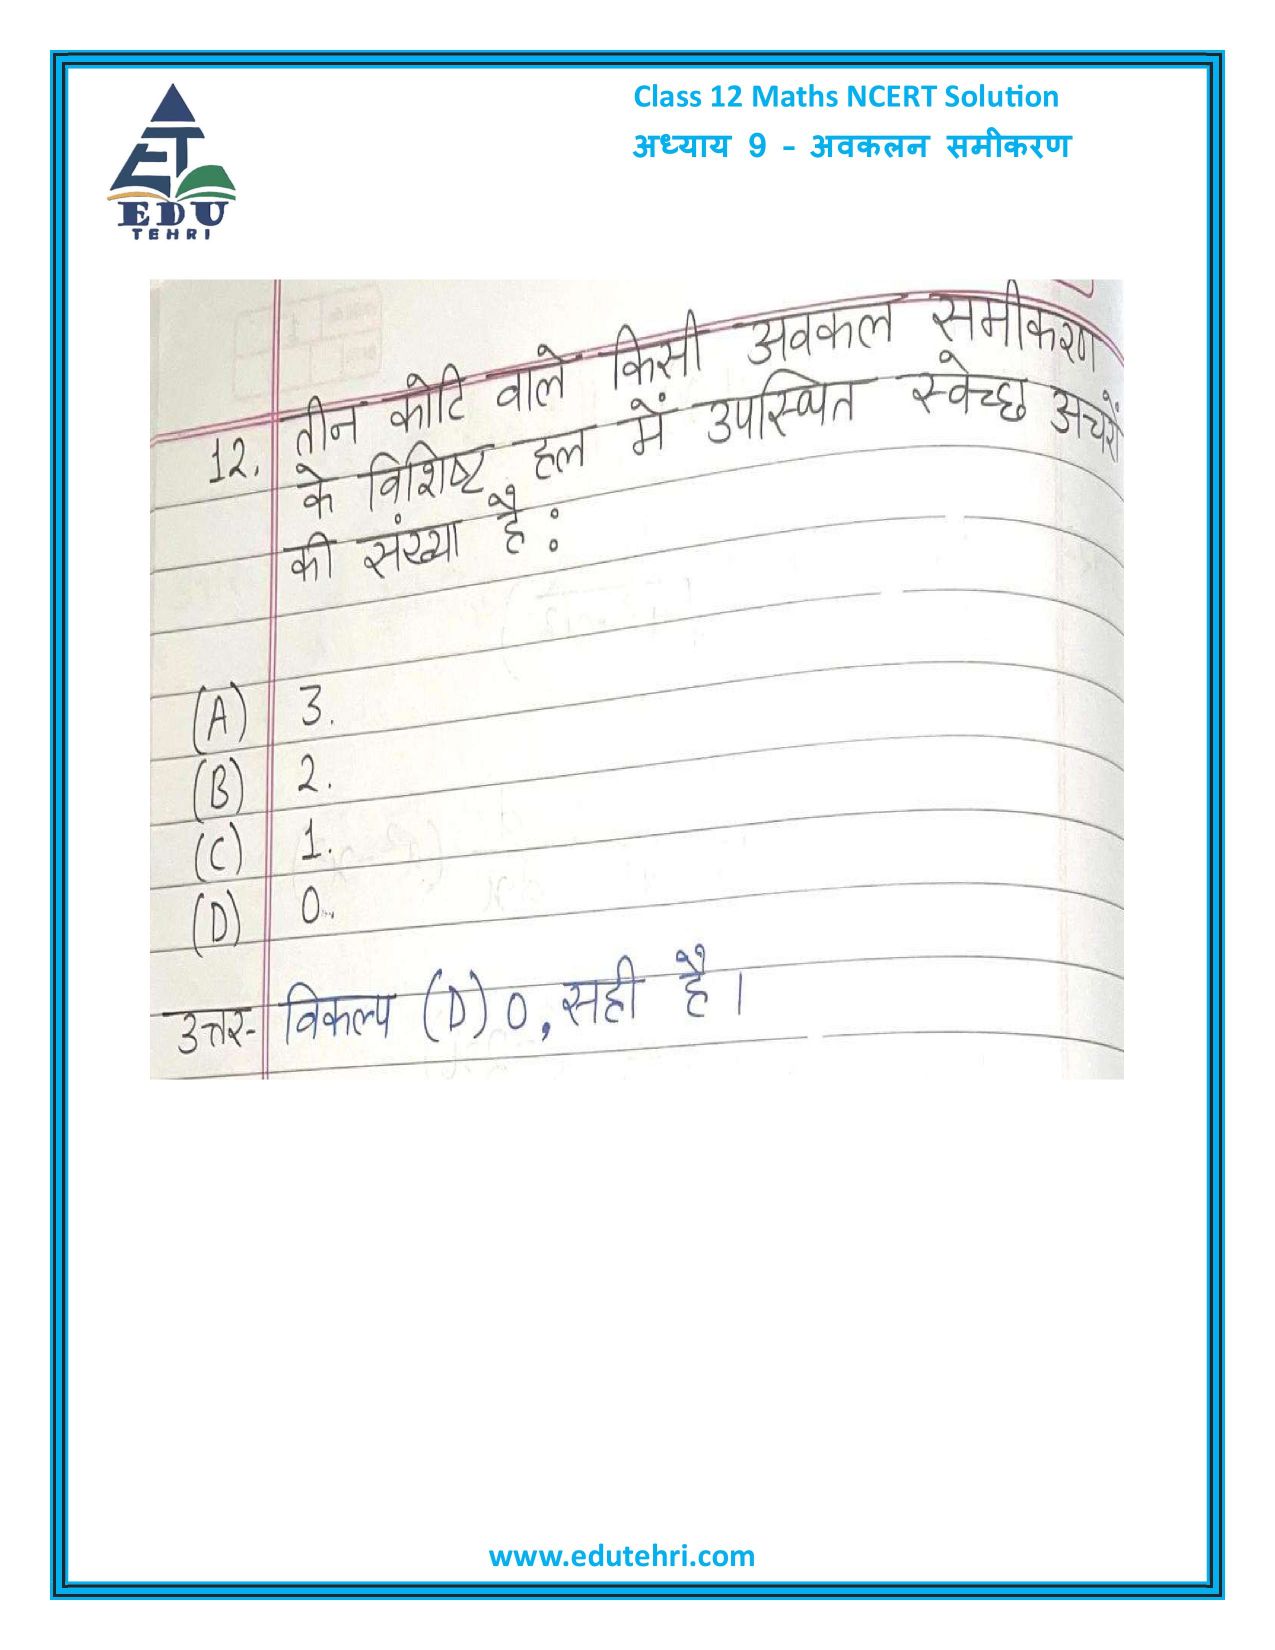 Class 12 Maths NCERT Solution
अध्याय 9 – अवकलन समीकरण
EDU
TEHRI
12. तीन कोटि वाले किसी अवकल समीकरण
के विशिष्ट हल में उपस्थित स्वेच्छ अचरों
की संख्या है :
(A) 3.
(B) 2.
(C) 1.
(D) 0.
उत्तर- विकल्प (D) 0, सही है।
www.edutehri.com